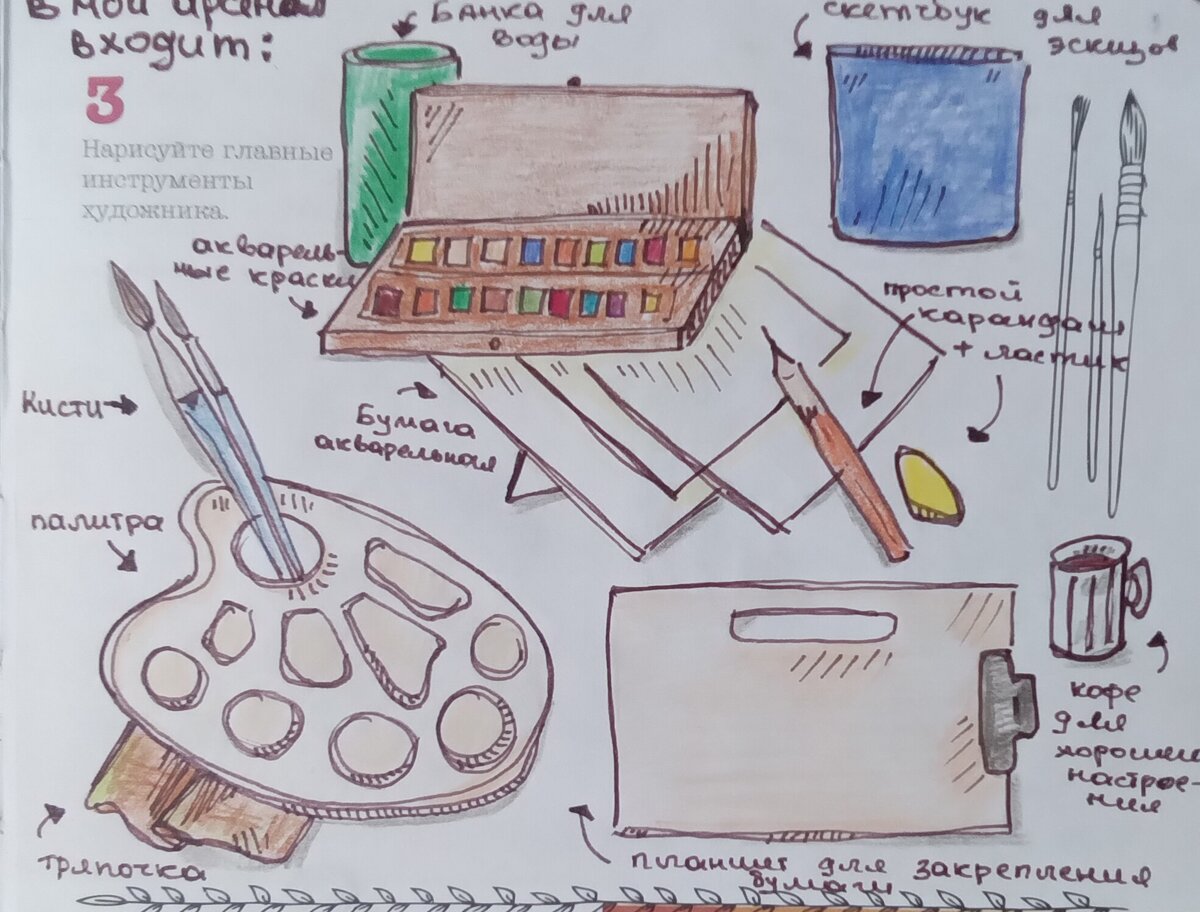 В мой арсенал
входит:
Банка для
воды
скетчбук для
эскизов
3
Нарисуйте главные
инструменты
художника.
акварель-
ные краски
простой
карандаш
+ ластик
Кисти
Бумага
акварельная
палитра
кофе
для
хорошего
настрое-
ния
тряпочка
планшет для закрепления
бумаги